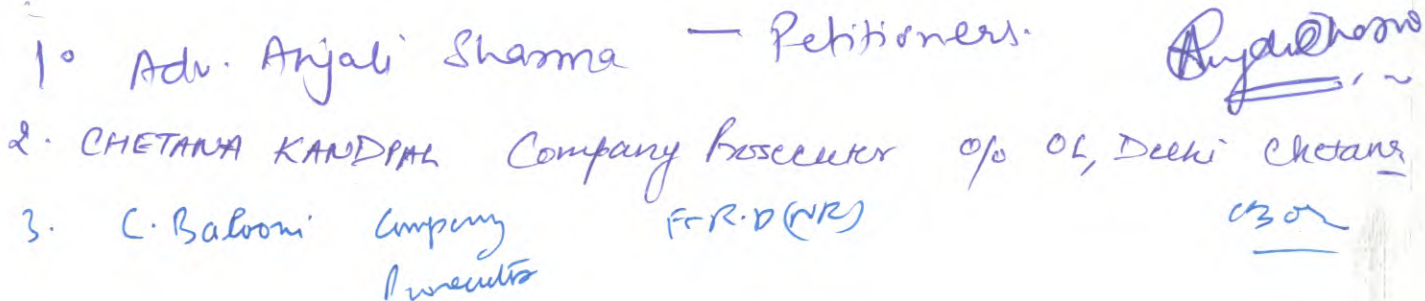 1. Adv. Anjali Sharma — Petitioners.
2. CHETANA KANDPAL Company Prosecutor O/o OL, Delhi Chetana
3. C. Balooni Company For R.D (NR)
Prosecutor